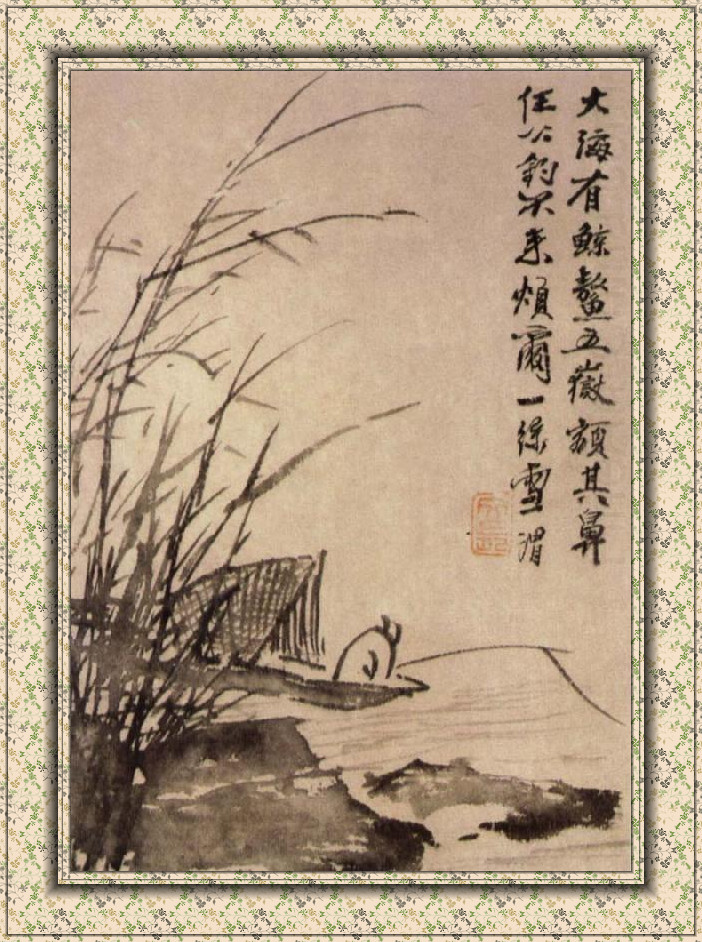 大海有鯨鰲五嶽額其鼻
任公釣不来煩爾一絲雪渭